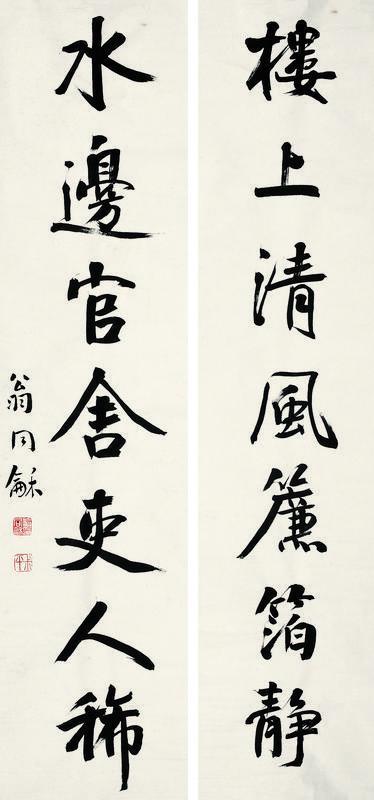 樓上清風簾箔静
水邊官舍吏人稀
翁同龢